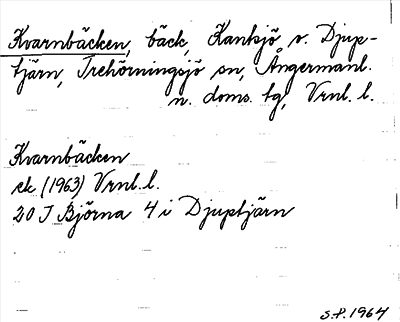 Kvarnbäcken, bäck, Kanksjö v. Djup-
tjärn, Trehörningsjö sn, Ångermanl.
n. doms. tg, Vrnl. l.
Kvarnbäcken
ek (1963) Vrnl. l.
20 J Björna 4 i Djuptjärn
S.P. 1964